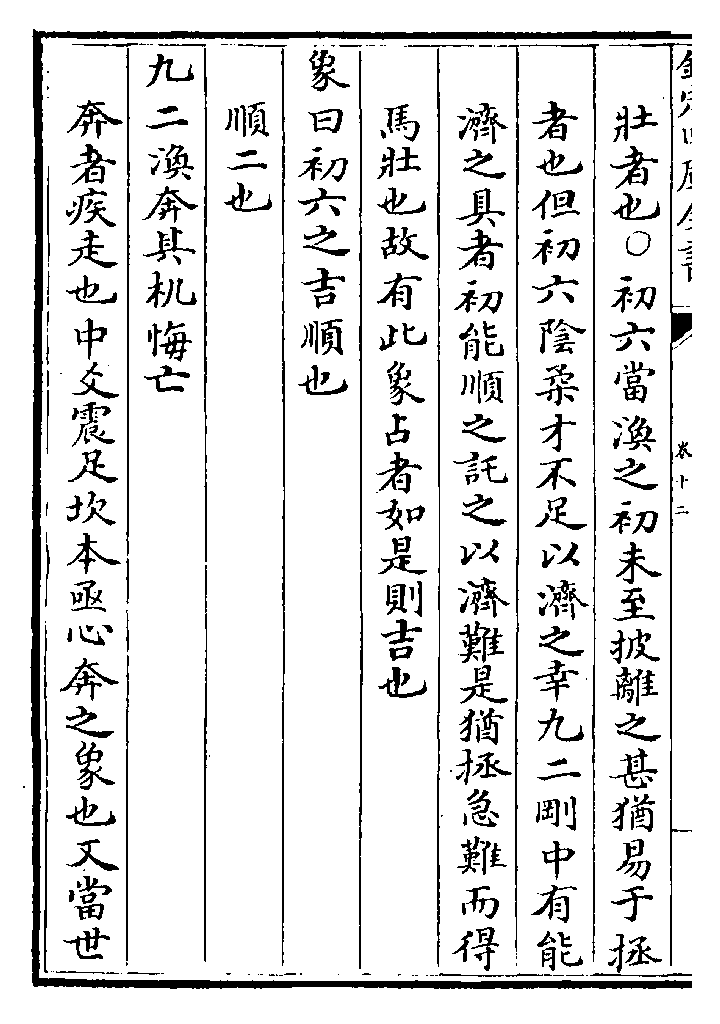 欽定四庫全書
卷十二
壯者也○初六當渙之初未至披離之甚猶易于拯
者也但初六陰柔才不足以濟之幸九二剛中有能
濟之具者初能順之託之以濟難是猶拯急難而得
馬壯也故有此象占者如是則吉也
象曰初六之吉順也
順二也
九二渙奔其机悔亡
奔者疾走也中爻震足坎本亟心奔之象也又當世